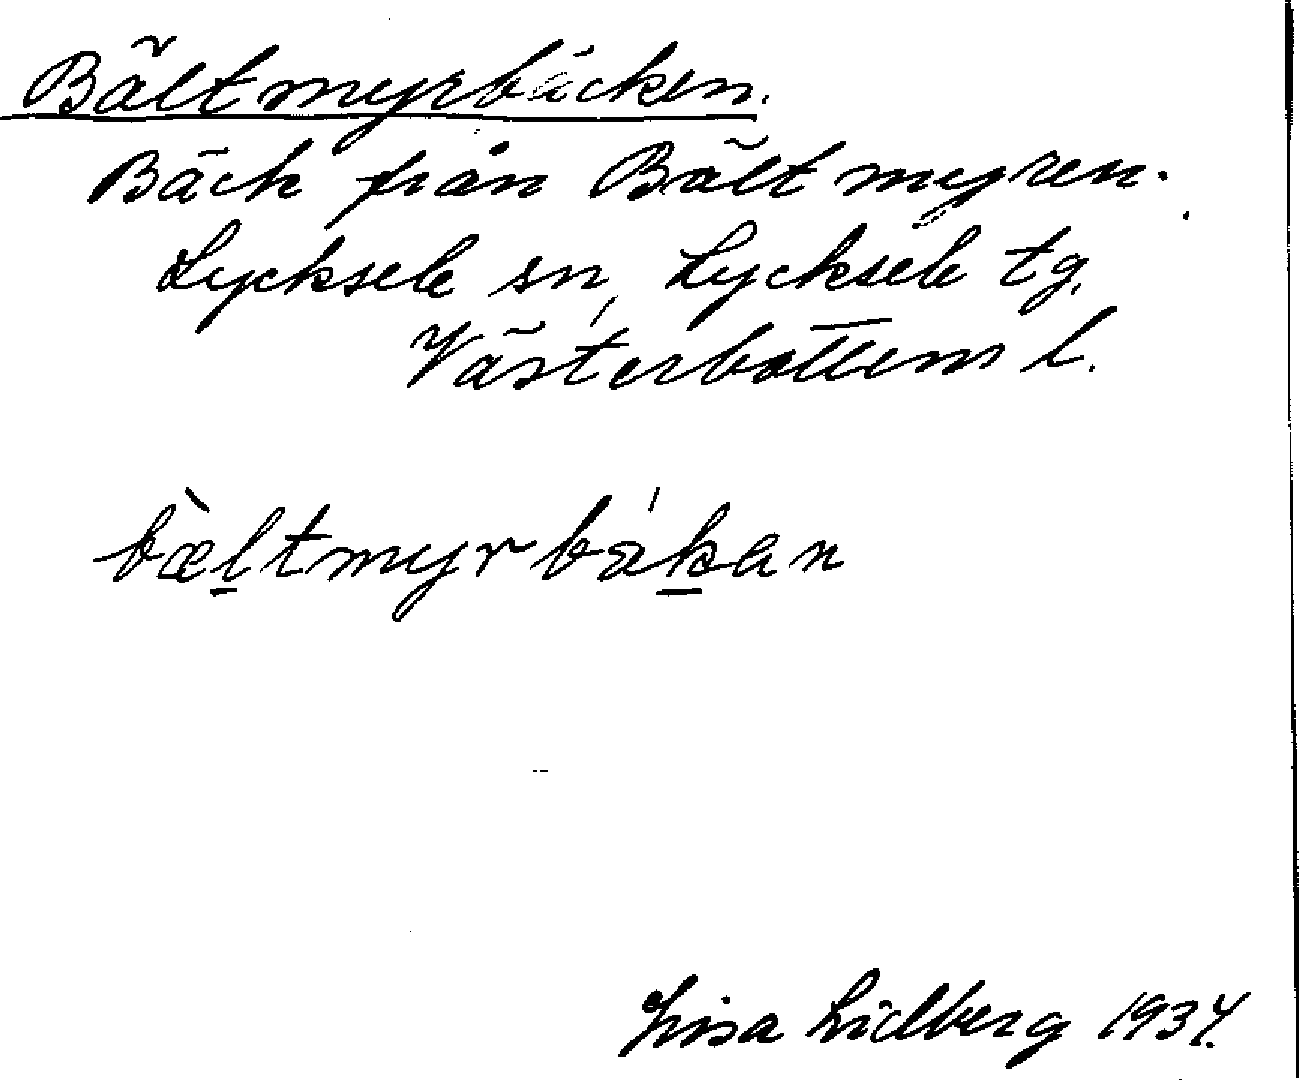 Bältmyrbäcken.
Bäck från Bältmyren.
Lycksele sn, Lycksele tg,
Västerbottens l.
bæ̀l̲tmyrbák̲an
Lisa Lidberg 1934.